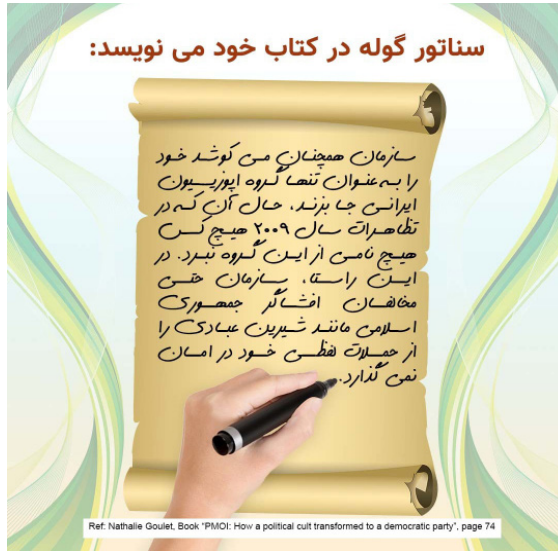 سناتور گوله در کتاب خود می نویسد:
سازمان همچنان می کوشد خود
را به عنوان تنها گروه اپوزیسیون
ایرانی جا بزند، حال آن که در
تظاهرات سال ۲۰۰۹ هیچ کس
هیچ نامی از این گروه نبرد. در
این راستا، سازمان حتی
مخالفان افشاگر جمهوری
اسلامی مانند شیرین عبادی را
از حملات لفظی خود در امان
نمی گذارد.
Ref: Nathalie Goulet, Book "PMOI: How a political cult transformed to a democratic party", page 74